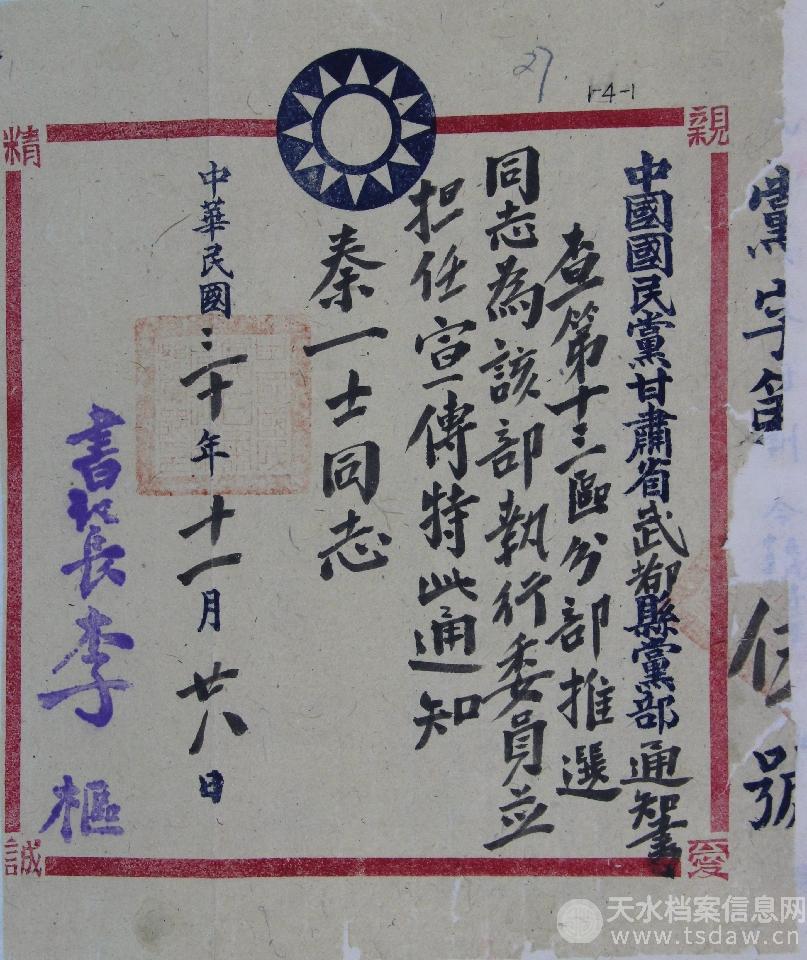 黨字第
任
號
中國國民黨甘肅省武都縣黨部通知書
查第十三區分部推選
同志為該部執行委員並
担任宣傳特此通知
秦一士同志
中華民國三十年十一月廿八日
書記長李樞
親愛精誠
27
1-4-1
天水档案信息网
www.tsdaw.cn